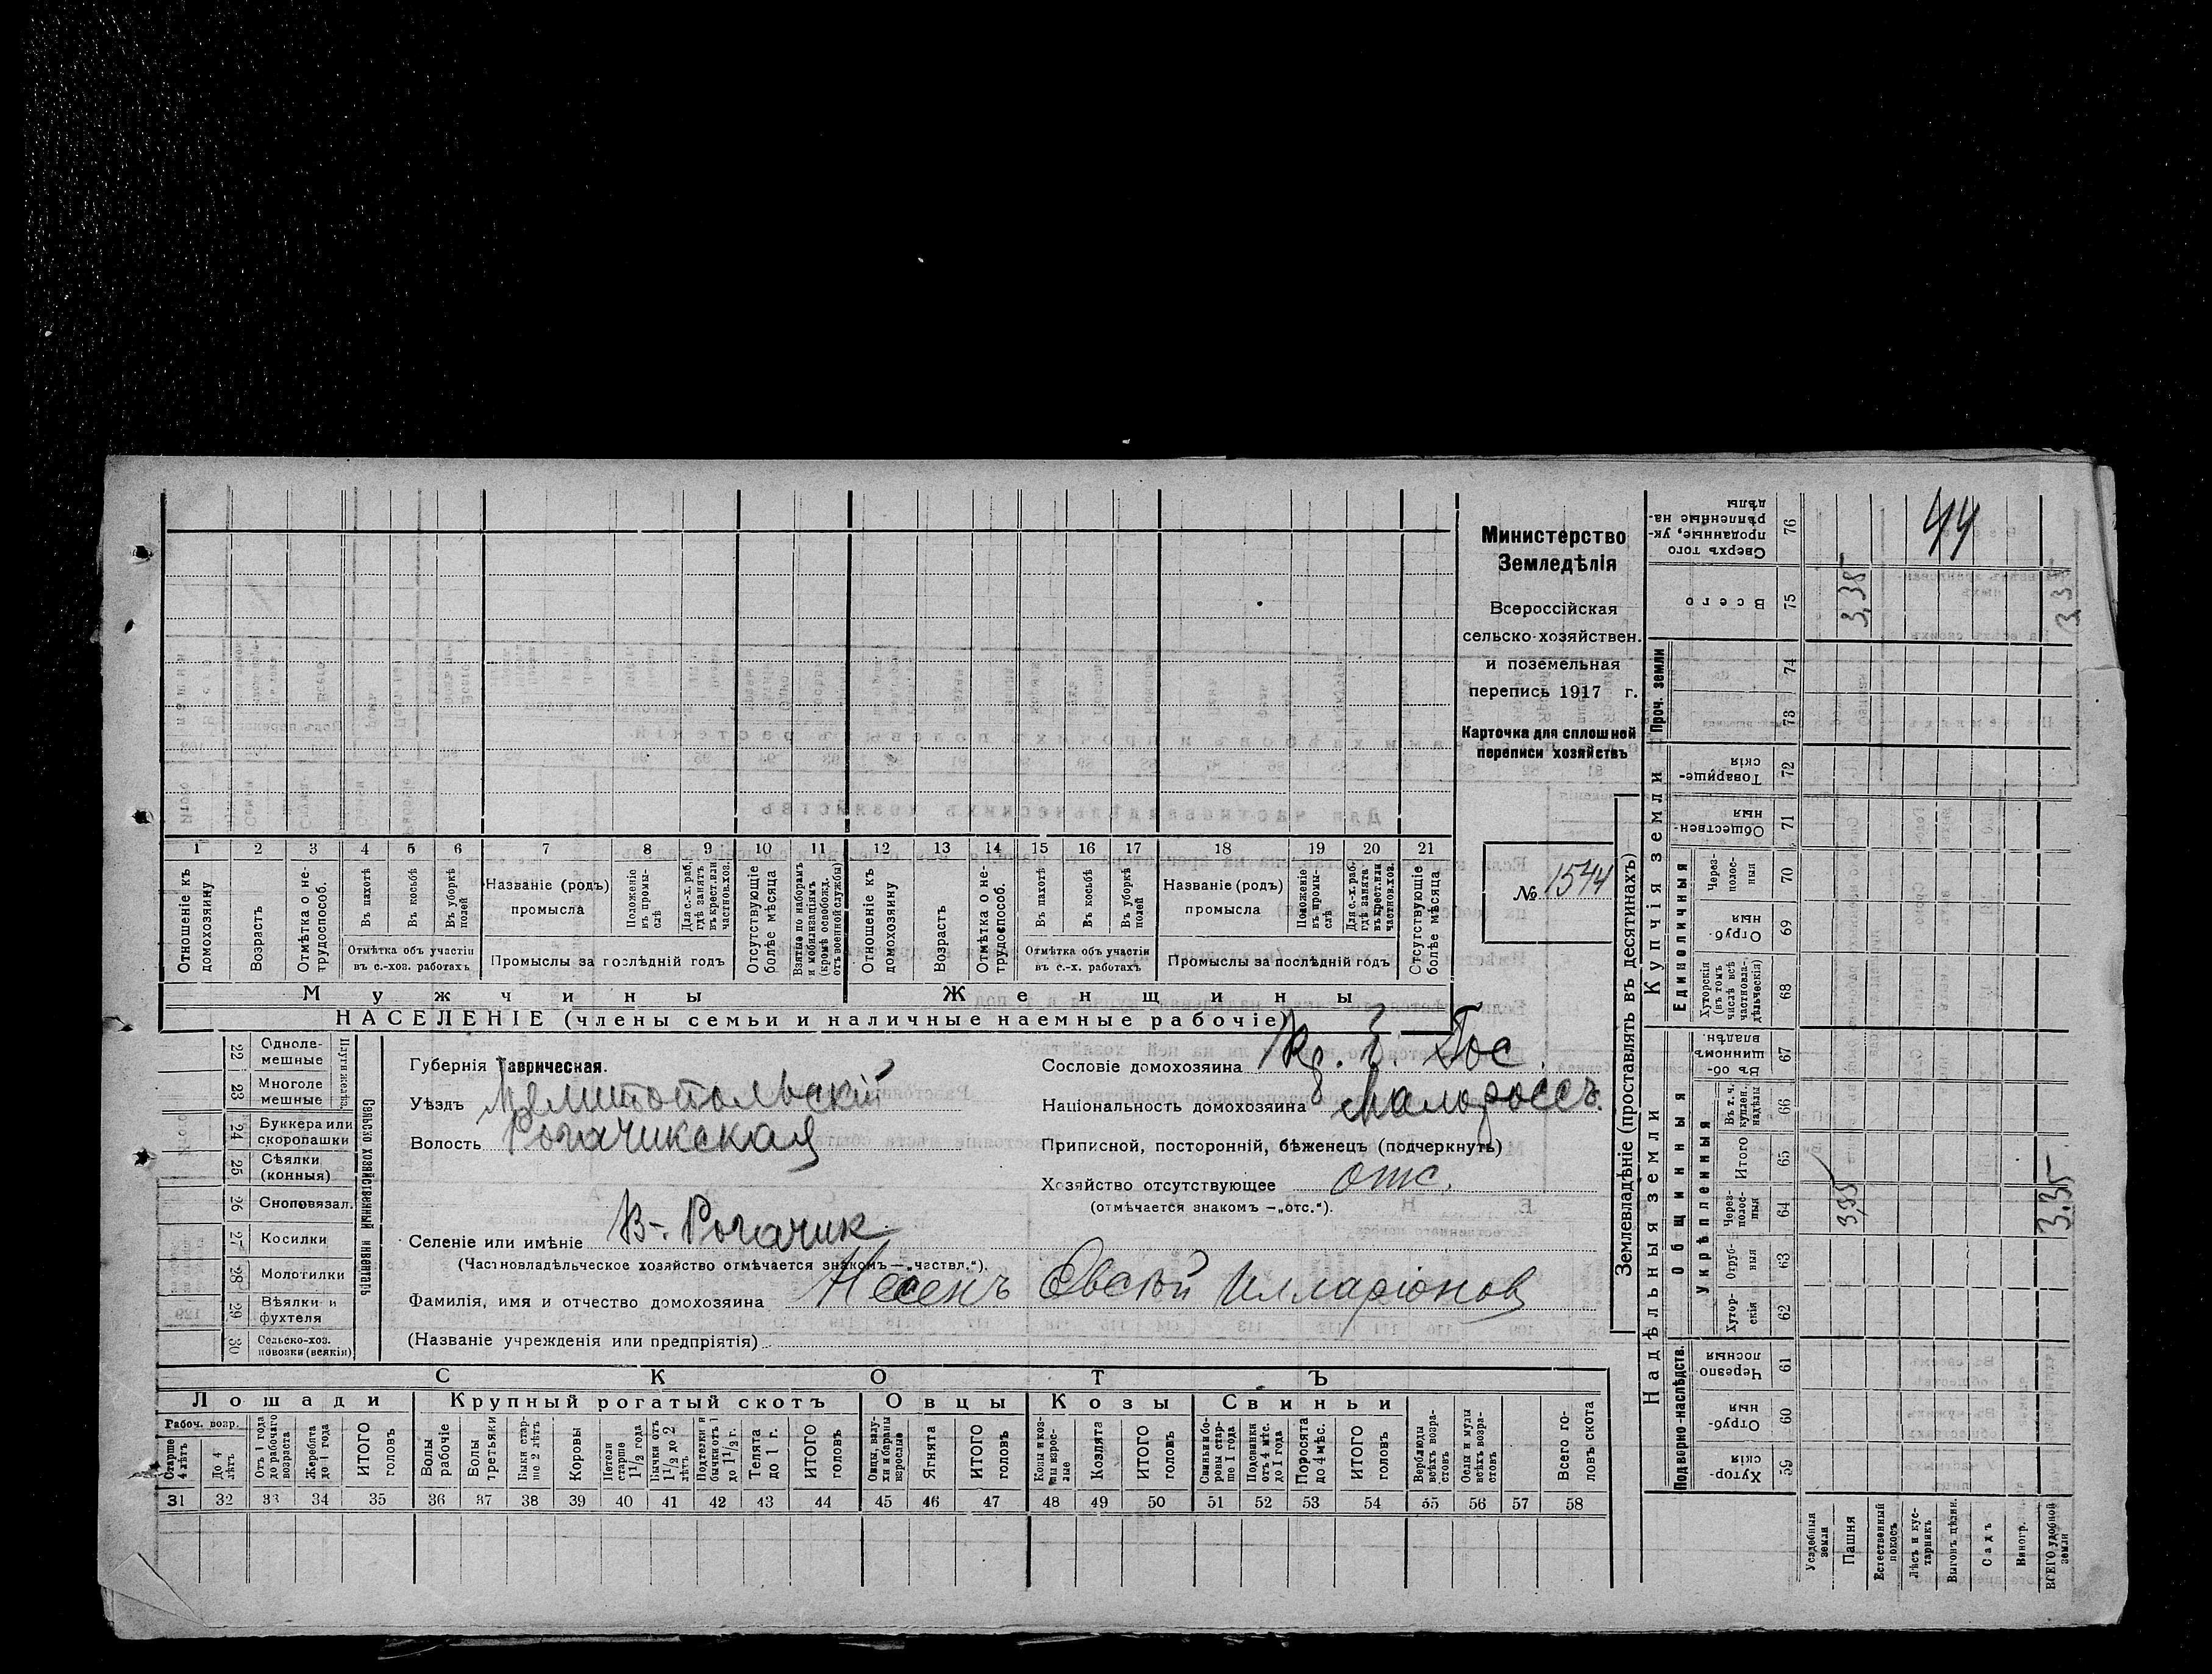 1 2 3 4 5 6 7 8 9 10 11 12 13 14 15 16 17 18 19 20 21
Отношеніе къ домохозяину
Возрастъ
Отмѣтка о не-трудоспособ.
Въ пахотѣ
Въ косьбѣ
Въ уборкѣ полей
Отмѣтка объ участіи
въ с.-хоз. работахъ
Названіе (родъ)
промысла
Положеніе въ промы-слѣ
Для с.-х. раб., гдѣ занятъ въ крест. или частнов. хоз.
Промыслы за послѣдній годъ
Отсутствующіе болѣе мѣсяца
Взятые по наборамъ и мобилизаціямъ (кромѣ освобожд. отъ военной службы)
Отношеніе къ домохозяину
Возрастъ
Отмѣтка о не-трудоспособ.
Въ пахотѣ
Въ косьбѣ
Въ уборкѣ полей
Отмѣтка объ участіи
въ с.-х. работахъ
Названіе (родъ)
промысла
Положеніе въ промы-слѣ
Для с.-х. раб. гдѣ занята въ крест. или частнов. хоз.
Промыслы за послѣдній годъ
Отсутствующіе болѣе мѣсяца
Мужчины
Женщины
НАСЕЛЕНІЕ (члены семьи и наличные наемные рабочіе)
Министерство
Земледѣлія
Всероссійская
сельско-хозяйствен.
и поземельная
перепись 1917 г.
Карточка для сплошной
переписи хозяйствъ
№ 1544
Сельско хозяйственный инвентарь
22 Одноле-мешные
23 Многоле мешные
24 Буккера или скоропашки
25 Сѣялки (конныя)
26 Сноповязал.
27 Косилки
28 Молотилки
29 Вѣялки и фухтеля
30 Сельско-хоз. повозки (всякія)
Губернія Таврическая.
Уѣздъ Мелитопольскій
Волость Рогачикская
Селеніе или имѣніе В-. Рогачик
(Частновладѣльческое хозяйство отмѣчается знакомъ —„частвл.“).
Фамилія, имя и отчество домохозяина Несенъ Овсѣй Илларіонов
(Названіе учрежденія или предпріятія)
Сословіе домохозяина Гос
Національность домохозяина Малороссъ.
Приписной, посторонній, бѣженецъ (подчеркнуть)
Хозяйство отсутствующее отс.
(отмѣчается знакомъ —„отс.“).
СКОТЪ
Лошади
Крупный рогатый скотъ
Овцы
Козы
Свиньи
Рабоч. возр.
Старше 4 лѣтъ
До 4 лѣтъ
Отъ 1 года до рабочаго возраста
Жеребята до 1 года
ИТОГО головъ
Волы рабочіе
Волы третьяки
Быки стар-ше 2 лѣтъ
Коровы
Нетели старше 1 1/2 года
Бычки отъ 1 1/2 до 2 лѣтъ
Подтелки и бычки отъ 1 до 1 1/2 г.
Телята до 1 г.
ИТОГО головъ
Овцы, валу-хи и бараны взрослые
Ягнята
ИТОГО головъ
Козы и коз-лы взрос-лые
Козлята
ИТОГО головъ
Свиньи бо-ровы стар-ше 1 года
Подсвинки отъ 4 мѣс. до 1 года
Поросята до 4 мѣс.
ИТОГО головъ
Верблюды всѣхъ возра-стовъ
Ослы и мулы всѣхъ возра-стовъ
Всего го-ловъ скота
31 32 33 34 35 36 37 38 39 40 41 42 43 44 45 46 47 48 49 50 51 52 53 54 55 56 57 58
Землевладѣніе (проставлять въ десятинахъ)
Надѣльныя земли
Купчія земли
Проч. земли
Подворно-наслѣдств.
Общинныя
Укрѣпленныя
Единоличныя
Хутор-скія 59
Отруб-ныя 60
Черезпо лосныя 61
Хутор-скія 62
Отруб-ныя 63
Через-полос-ныя 64
Итого 65
Въ т. ч. куплен. надѣлы 66
Въ об-щинномъ владѣн. 67
Хуторскія (въ томъ числѣ всѣ частновла-дѣльческія) 68
Отруб-ныя 69
Через-полос-ныя 70
Обществен-ныя 71
Товарище-скія 72
73
74
Всего 75
Сверхъ того проданные, ук-рѣпленные на-дѣлы 76
Усадебныя земли
Пашня 3,35 3,35
Естественный покосъ
Лѣсъ и кус-тарникъ
Выгонъ, цѣлин.
Садъ
Виногр.
ВСЕГО удобной земли 3,35 3,35
44